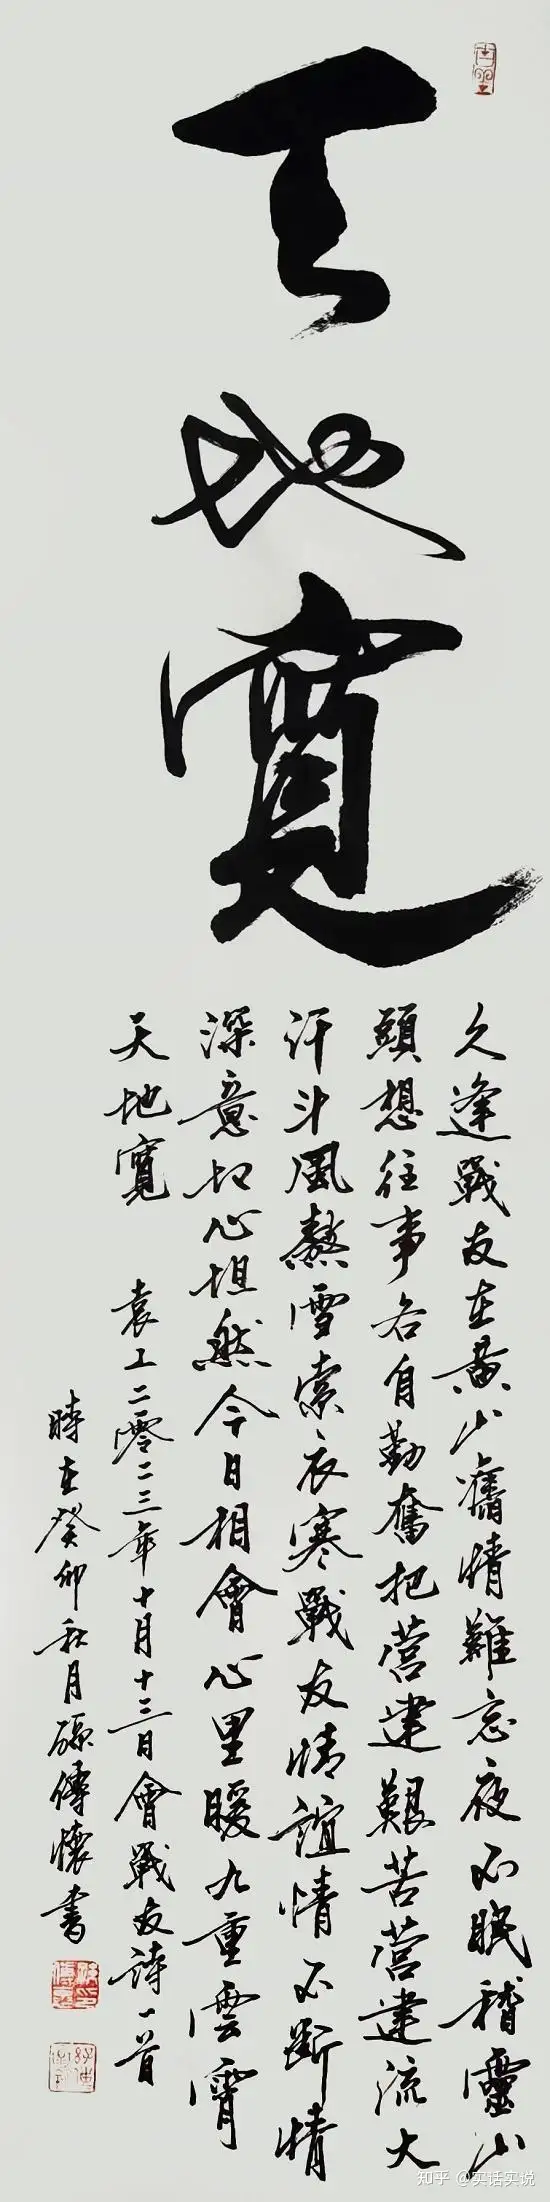 天地寬
久逢戰友在黄山舊情難忘夜不眠稽靈山
頭想往事各自勤奮把营建艱苦营建流大
汗斗風熬雪索衣寒戰友情誼情不断情
深意切心坦然今日相會心里暖九重雲霄
天地寬 袁工二零二三年十月十三日會戰友詩一首
時在癸卯秋月 傳懷書
知乎 @实话实说